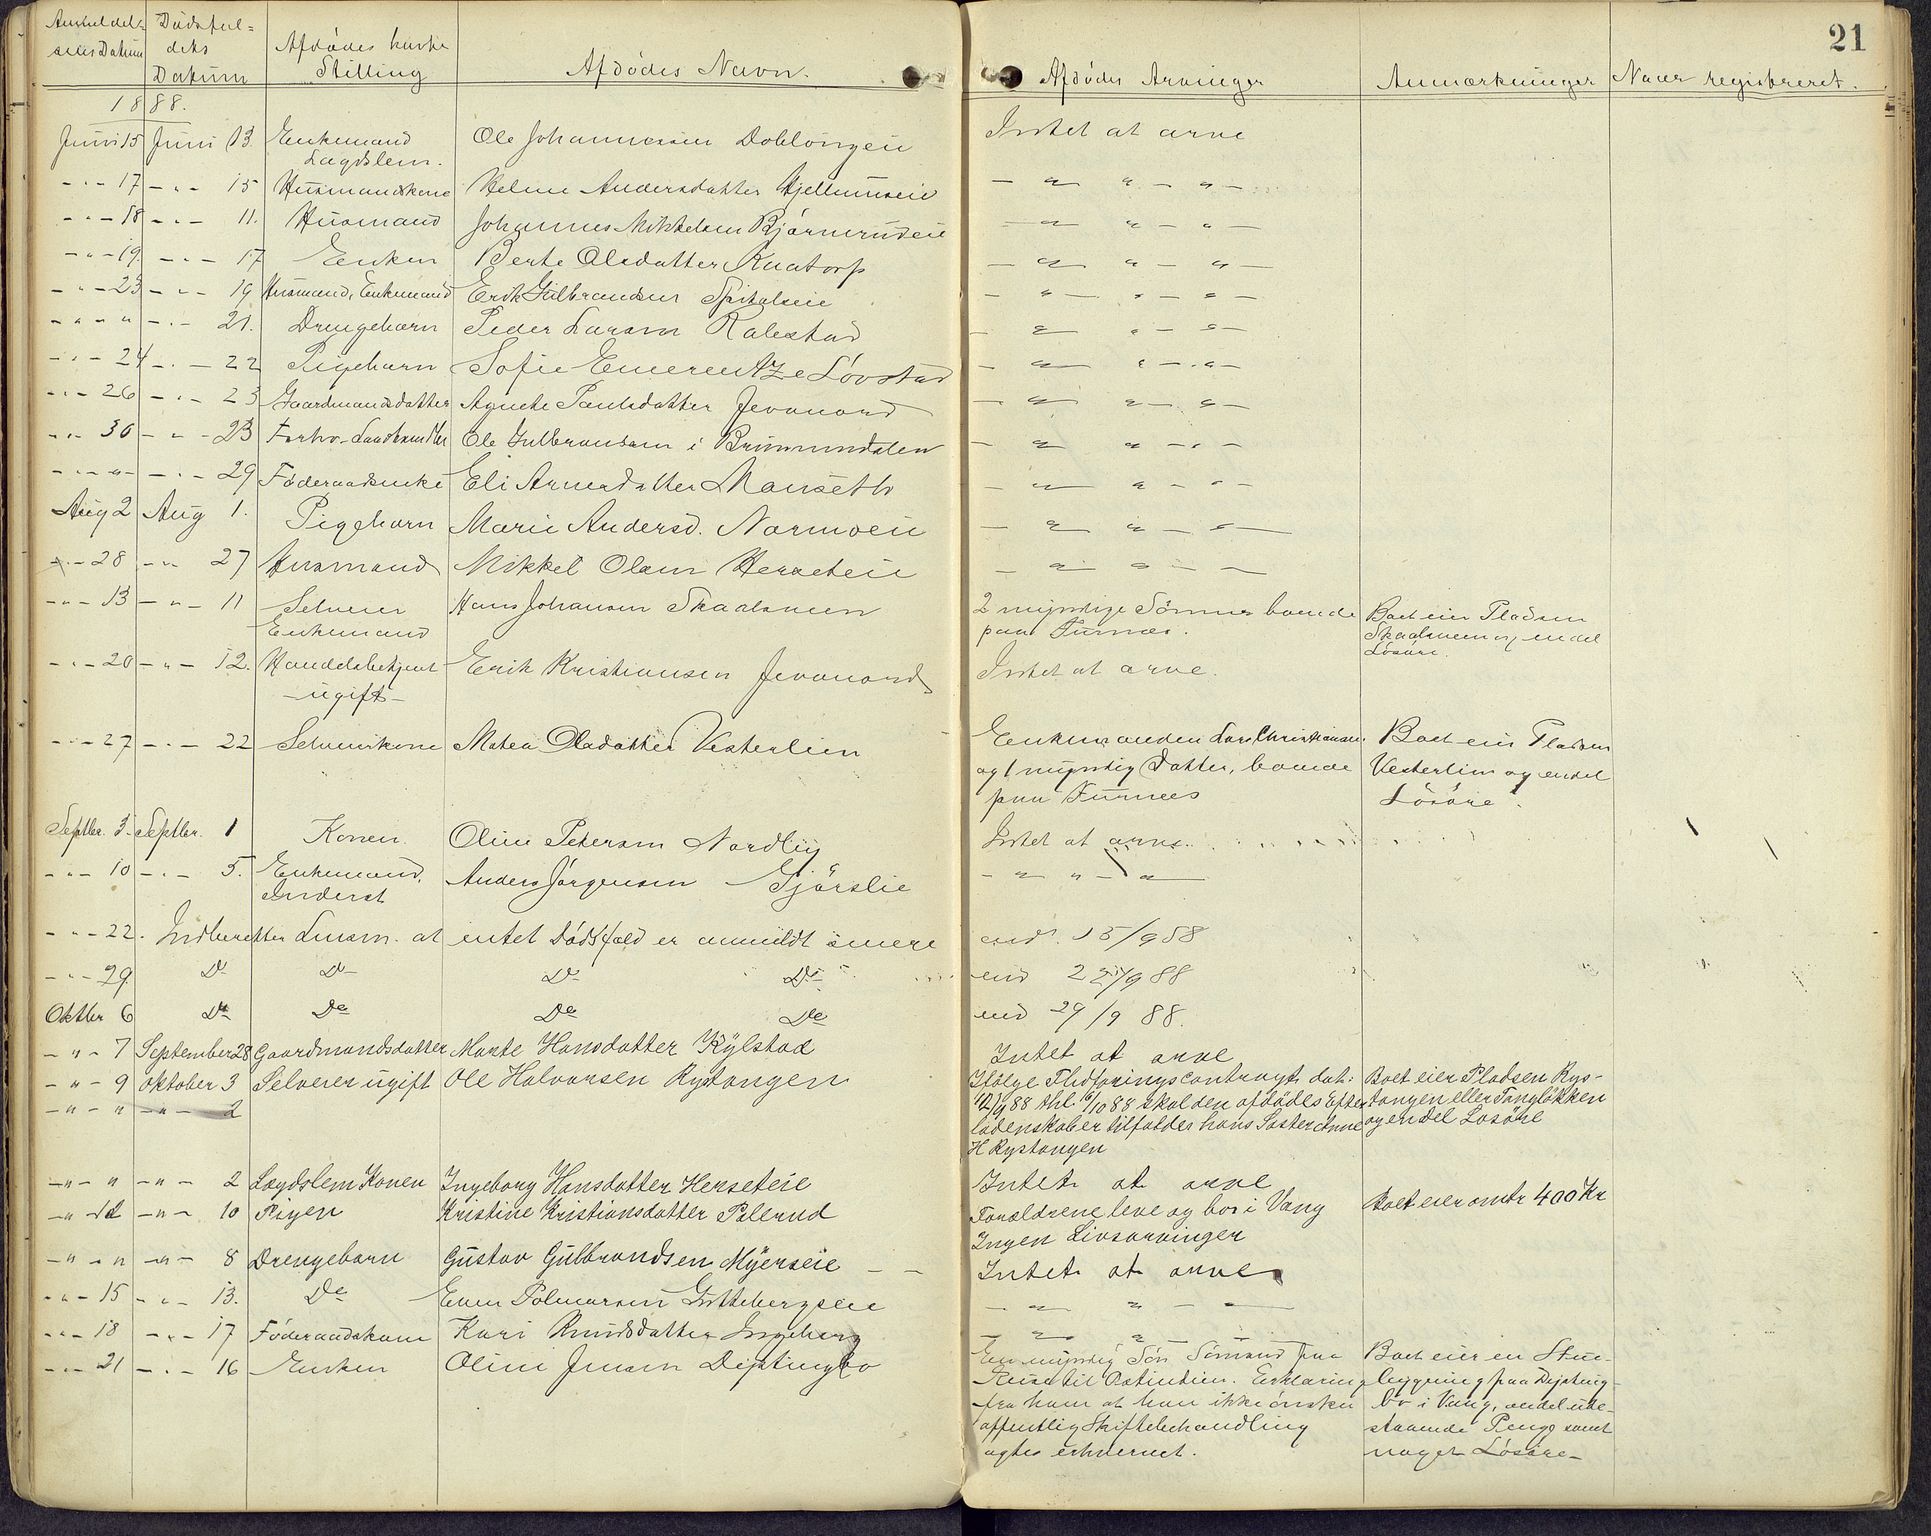 21
Anmeldel-
sens Datum
Dødsfal-
dets
Datum
Afdødes havte
Stilling
Afdødes Navn.
Afdødes Arvinger
Anmærkninger
Naar registreret.
1888.
Juni 15 Juni 13. Enkemand Ole Johannessen Doblougeie Intet at arve
Lægdslem.
- " - 17 - " - 15 Husmandskone Helene Andersdatter Hjellumseie - " " - " -
- " - 18 - " - 11. Husmand Johannes Mikkelsen Bjørnerudeie " " - " -
- " - 19. - " - 17 Enken Berte Olsdatter Knatorp - " " - " -
- " - 23 - " - 19 Husmand, Enkemand Erik Gulbrandsen Spitalseie - " - " - " -
- " " " - " - 21. Drengebarn Peder Larsen Kalestad - " " - " -
- " - 24 - " - 22 Pigebarn Sofie Emerentze Løvstad - " " - " -
- " - 26 - " - 23 Gaardmandsdatter Agnete Paulsdatter Jevanord - " " - " -
- " - 30 - " - 23 Forhv. Landhandler Ole Gulbrandsen i Brumunddalen - " " - " -
- " - " - - " - 29 Føderaadsenke Eli Arnesdatter Manseth - " " - " -
Aug 2 Aug 1. Pigebarn Marie Andersd. Narmoeie - " " - " -
- " - 28 - " - 27 Husmand Mikkel Olsen Herseteie - " " -
- " - 13 - " - 11 Selveier Hans Johansen Skaalsveen 2 myndige Sønner boende Boet eier Pladsen
Enkemand paa Furnes. Skaalsveen og endel
Løsøre.
- " - 20 - " - 12. Handelsbetjent Erik Kristiansen Jevanord Intet at arve.
- ugift -
- " - 27 - " - 22 Selveierkone Matea Olsdatter Vesterlien Enkemanden Lars Christiansen Boet eier Pladsen
og 1 myndig Datter, boende Vesterlien og endel
paa Furnæs Løsøre.
Septbr. 3. Septbr. 1 Konen Oline Petersen Nordby Intet at arve.
- " - 10 - " - 5. Enkemand, Anders Jørgensen Gjørslie - " " - "
Inderst
- " - 22. Indberetter Lensm. at intet Dødsfald er anmeldt senere end 15/9 88
- " - 29. Do Do Do Do end 22/9 88
Oktbr 6 Do Do Do Do end 29/9 88.
- " - 7 September 28 Gaardmandsdatter Marte Hansdatter Kylstad Intet at arve
- " - 9 Oktober 3 Selveier ugift Ole Halvorsen Rystangen Ifølge Flidføringscontragt dat: Boet eier Pladsen Rys-
- " - " - " - 2 12/9 88 thl. 16/10 88 skal den afdødes Efter- tangen eller Tangløkken
ladenskaber tilfalde hans Søster Anne og en Del Løsøre
H Rystangen
- " - " - " - 2 Lægdslem Konen Ingeborg Hansdatter Herseteie Intet at arve
- " - 12 - " - 10 Pigen Kristine Kristiansdatter Palerud Forældrene leve og bor i Vang Boet eier omtr 400 Kr
Ingen Livsarvinger
- " - " - " - 8 Drengebarn Gustav Gulbrandsen Myerseie - - Intet at arve
- " - 15 - " - 13. Do Even Palmarsen - " " - "
- " - 18 - " - 17 Føderaadskone Kari Knudsdatter Ingeberg - " "
- " - 21 - " - 16 Enken Oline Jensen Deptingbo En myndig Søn Sømand paa Boet eier en Stue-
Reise til Ostindien. Erklæring bygning paa Diptung-
fra ham at han ikke ønsker bo i Vang, endel ude-
offentlig Skiftebehandling staaende Penge samt
agtes erhvervet. noget Løsøre -